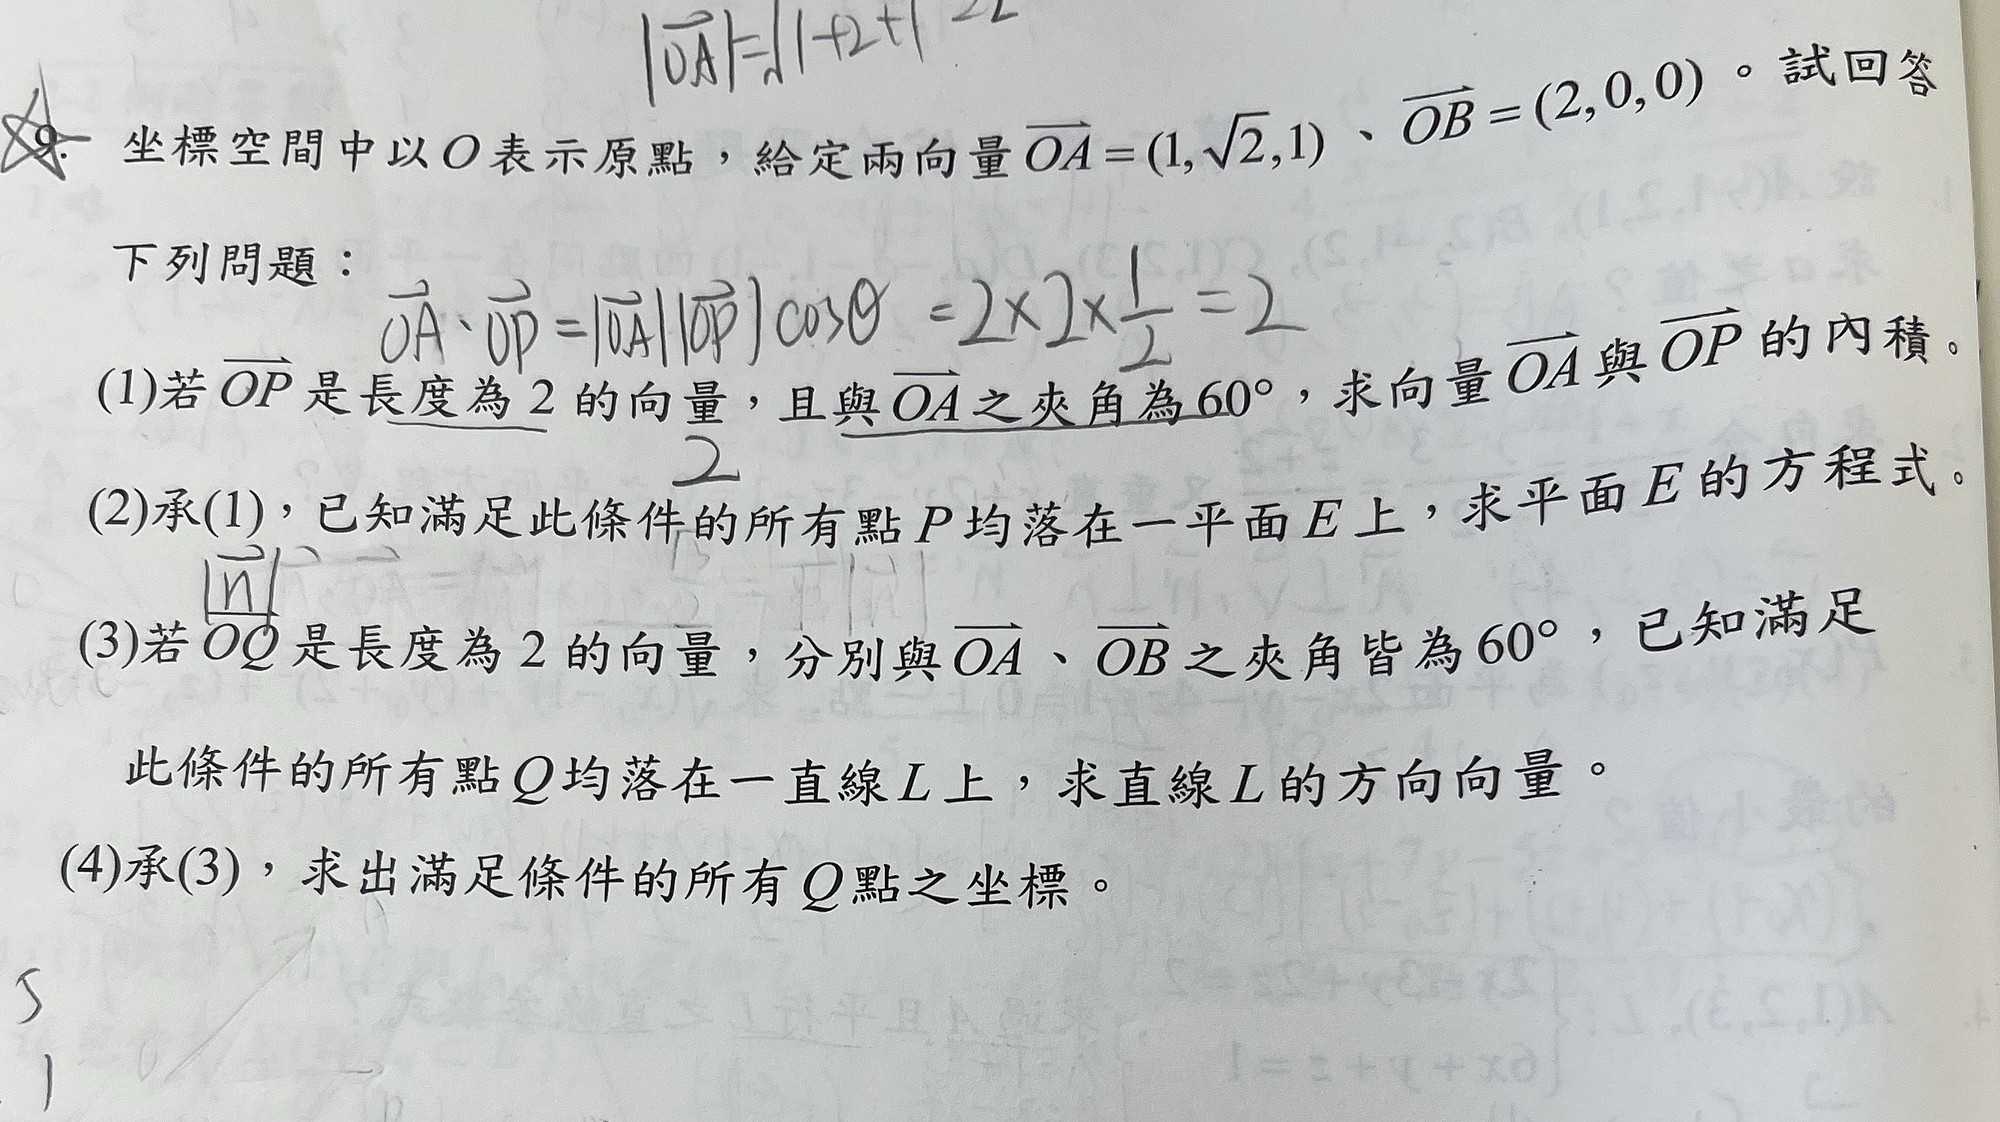 |OA|=√1+2+1 =2
9. 坐標空間中以O表示原點，給定兩向量OA=(1,√2,1)、OB=(2,0,0)。試回答
下列問題：
OA·OP=|OA||OP|cosθ =2×2×1/2=2
(1)若OP是長度為2的向量，且與OA之夾角為60°，求向量OA與OP的內積。
2
(2)承(1)，已知滿足此條件的所有點P均落在一平面E上，求平面E的方程式。
|n|
(3)若OQ是長度為2的向量，分別與OA、OB之夾角皆為60°，已知滿足
此條件的所有點Q均落在一直線L上，求直線L的方向向量。
(4)承(3)，求出滿足條件的所有Q點之坐標。